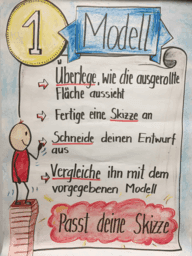 1 Modell
Überlege, wie die ausgerollte
Fläche aussieht
Fertige eine Skizze an
Schneide deinen Entwurf
aus
Vergleiche ihn mit dem
vorgegebenen Modell
Passt deine Skizze